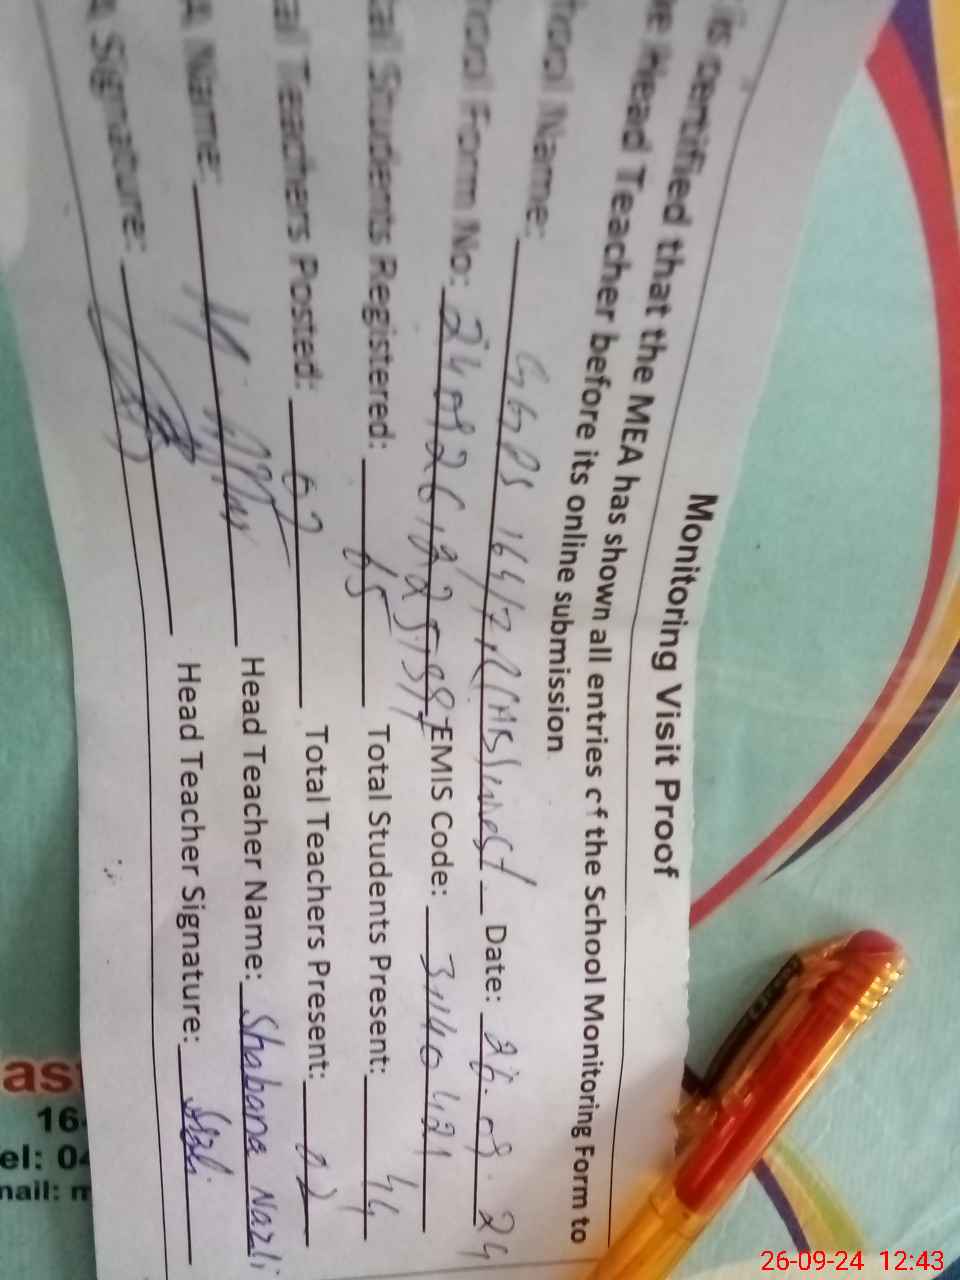 Monitoring Visit Proof
is certified that the MEA has shown all entries of the School Monitoring Form to
Head Teacher before its online submission
Name: GGPS 164/7.R Date: 26.09.24
Form No: EMIS Code: 31140421
Students Registered: 65 Total Students Present: 44
Teachers Posted: 02 Total Teachers Present: 02
Name: Head Teacher Name: Shabana Nazli
Signature: Head Teacher Signature:
as
16-
el: 04
mail: m
26-09-24 12:43